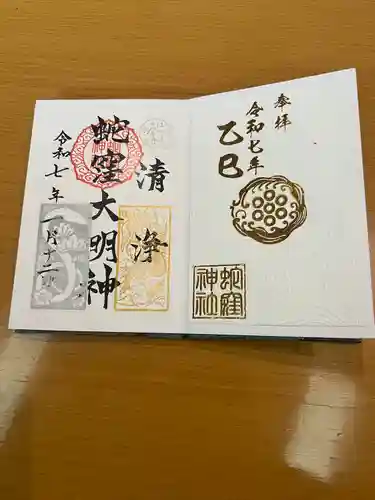 奉拝
令和七年
乙巳
蛇窪
神社
清浄
蛇窪大明神
令和七年一月十二